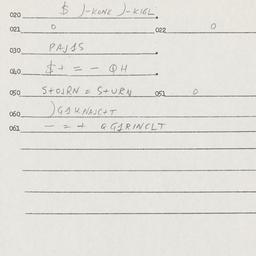 020 $ )-KONK )-KIGL.
021 0 022 0
030 PAJ1S
040 $+ = - QH
050 S+OJRN = S+URN 051 0
060 )G1KNAJC+T
061 - = + QG1RINCLT